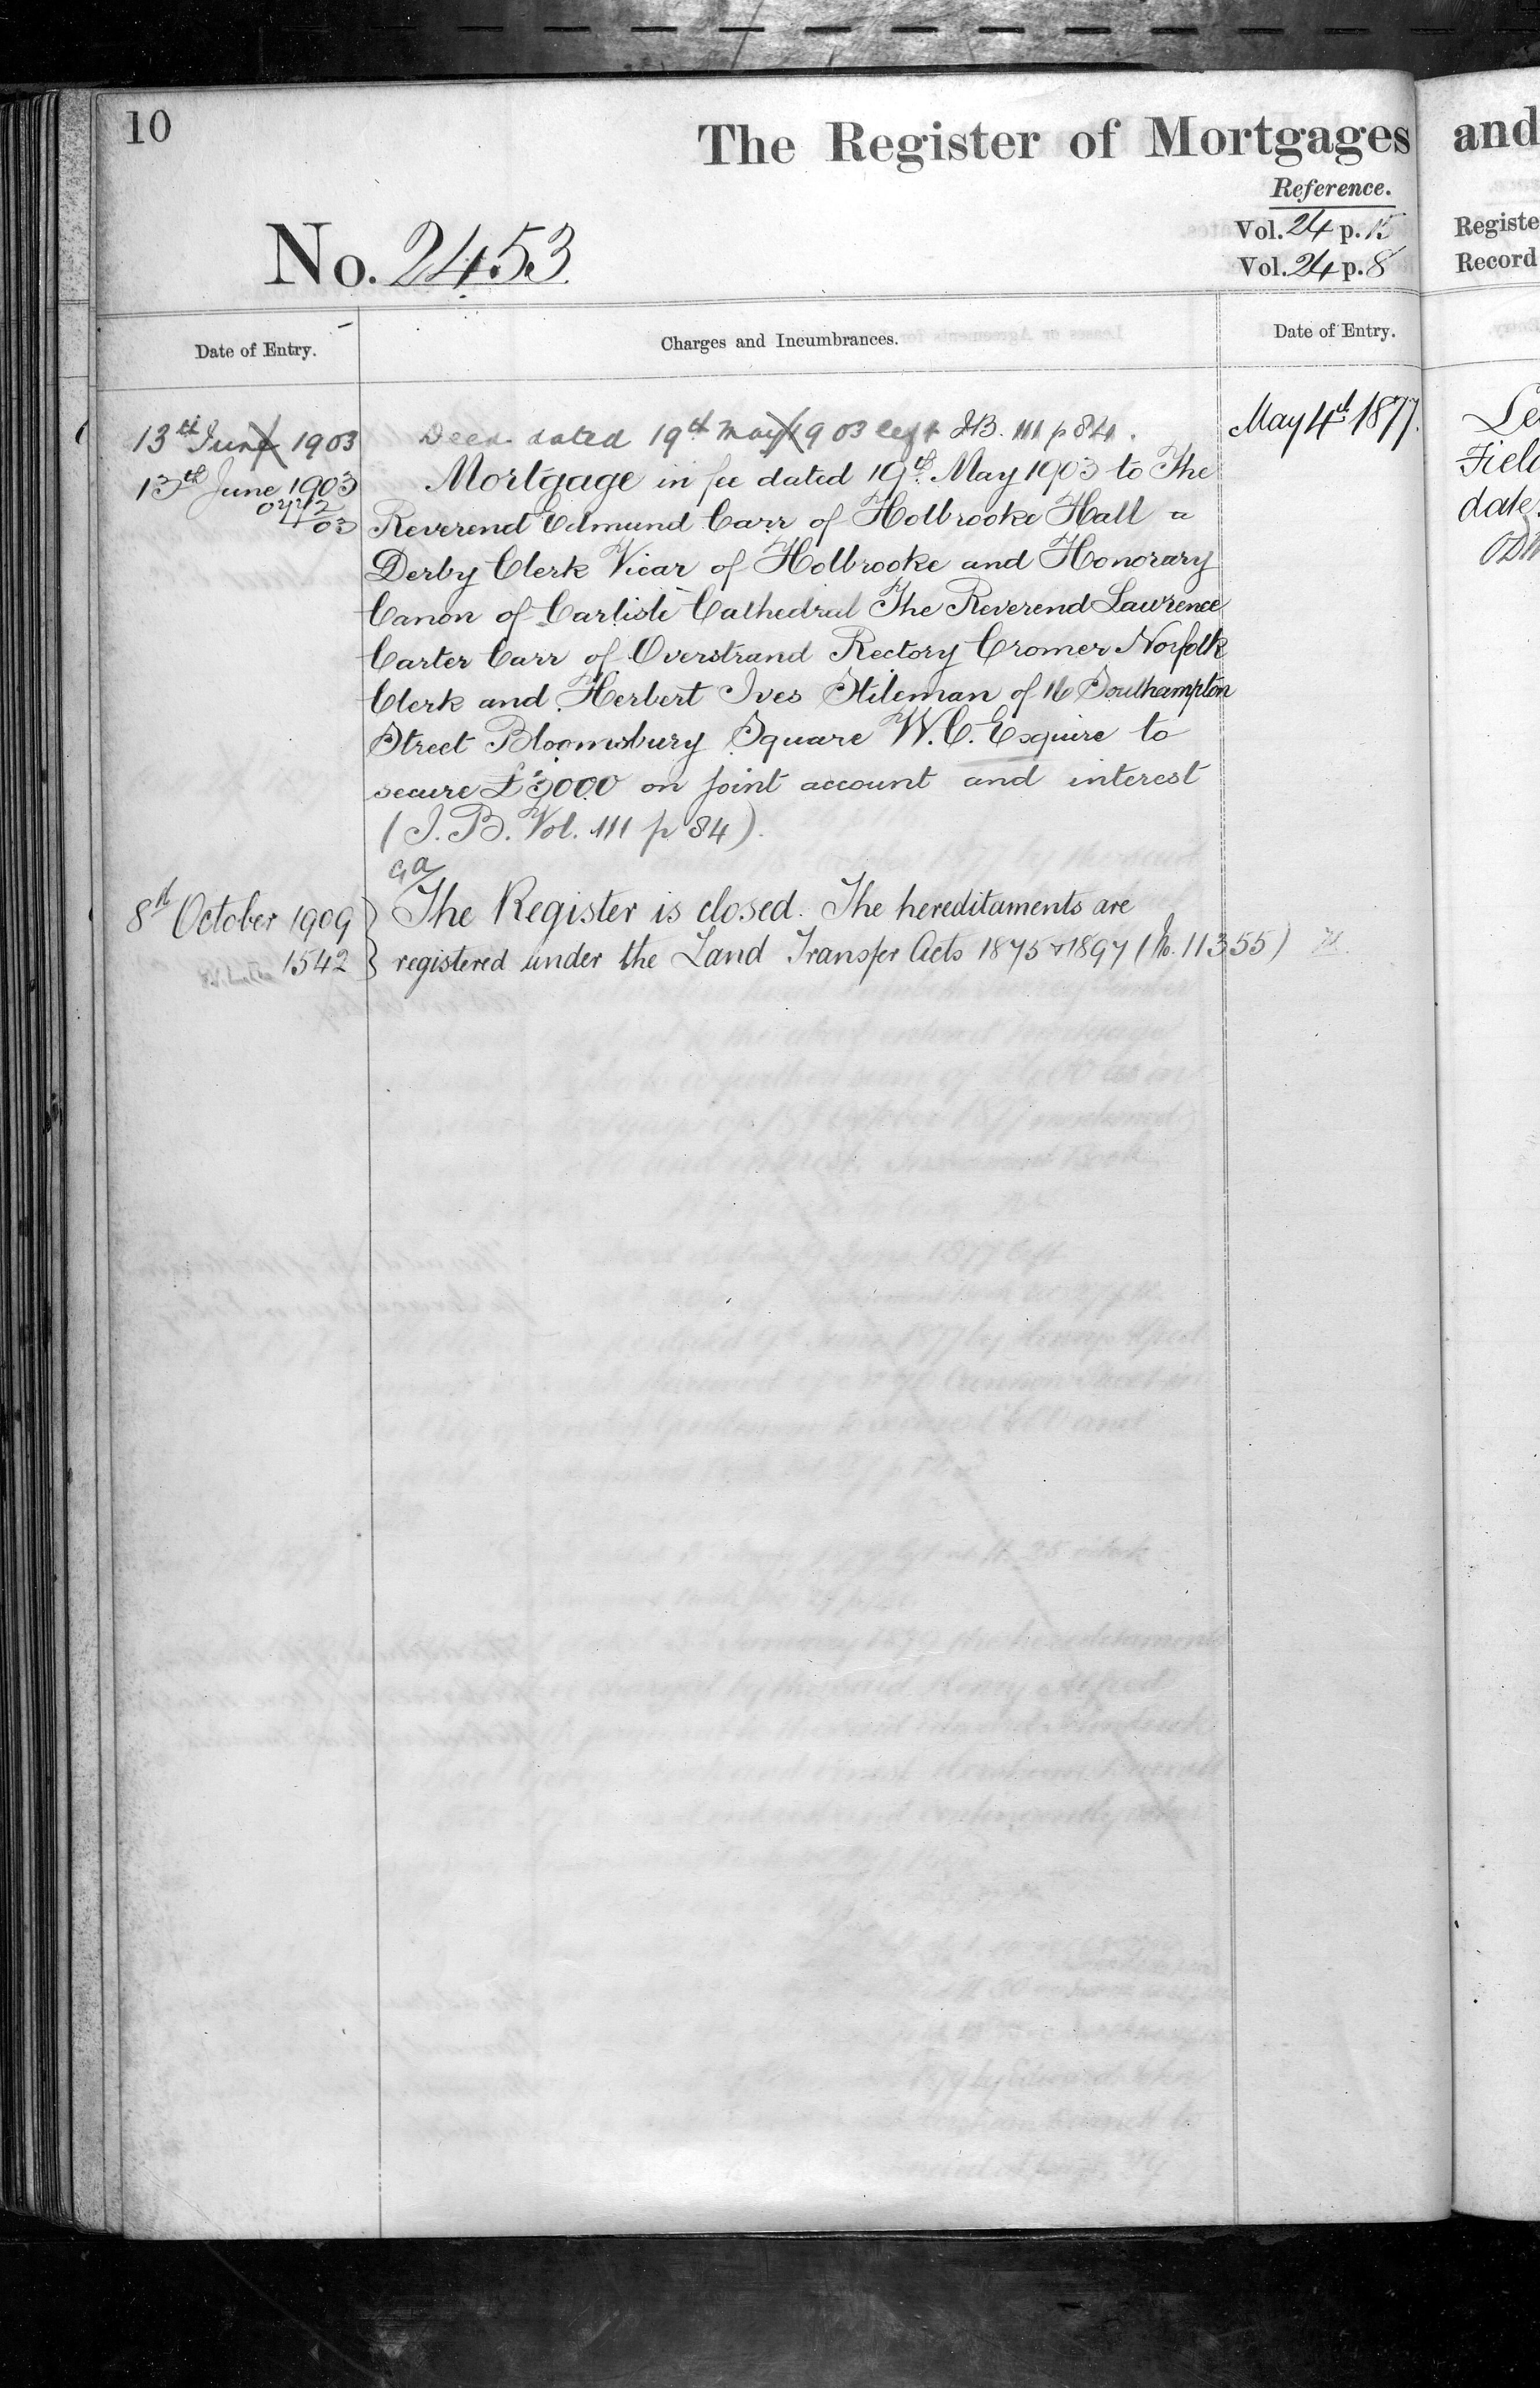 10
The Register of Mortgages and
Reference.
No. 2453
Vol. 24 p. 15
Vol. 24 p. 8
Registe
Record
Date of Entry.
Charges and Incumbrances.
Date of Entry.
13th June 1903
Deed dated 19th May 1903 left I.B. 111 p 84.
May 4th 1877.
13th June 1903
Mortgage in fee dated 19th May 1903 to The
Reverend Edmund Carr of Holbrooke Hall
Derby Clerk Vicar of Holbrooke and Honorary
Canon of Carlisle Cathedral The Reverend Lawrence
Carter Carr of Overstrand Rectory Cromer Norfolk
Clerk and Herbert Ives Stileman of 16 Southampton
Street Bloomsbury Square W.C. Esquire to
secure £3000 on joint account and interest
(I.B. Vol. 111 p 84).
8th October 1909
The Register is closed. The hereditaments are
1542
registered under the Land Transfer Acts 1875 & 1897 (No. 11355)
Field
date